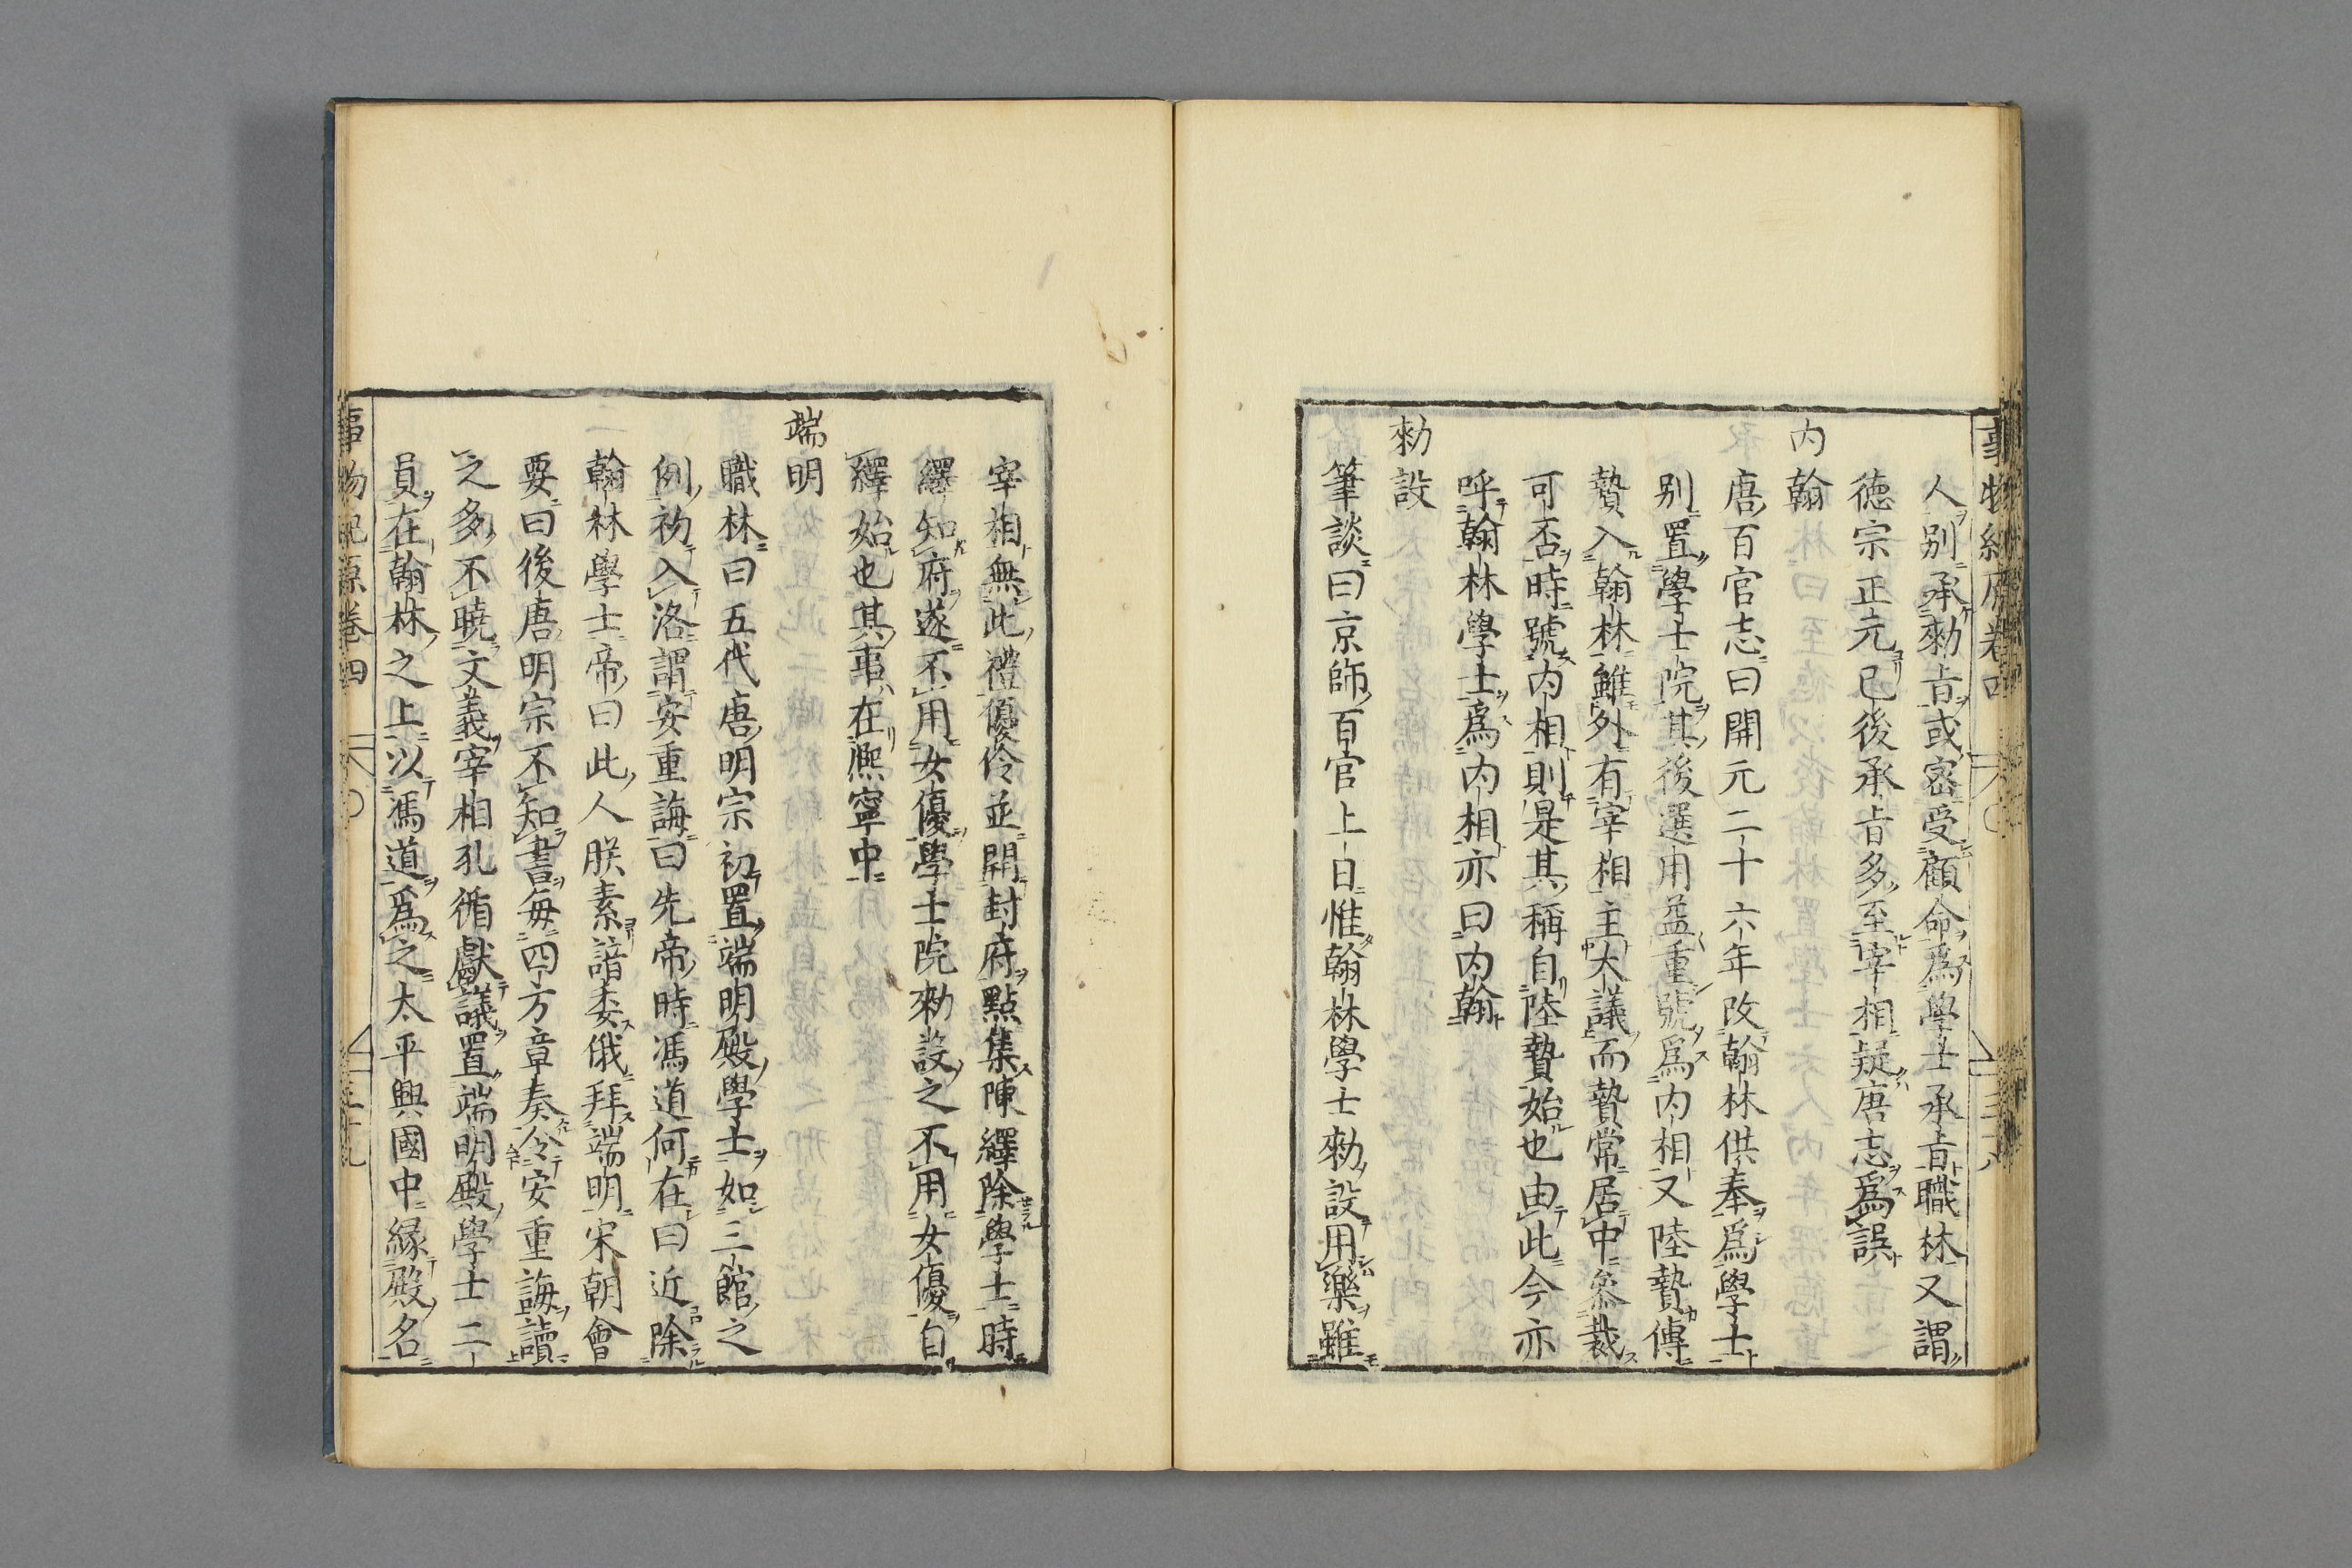 人別承勑㫖或密受顧命為學士承㫖職林又謂
德宗正元已後承㫖多至宰相疑唐志為誤
内翰
唐百官志曰開元二十六年改翰林供奉為學士
别置學士院其後選用益重號為内相又陸贄傳
贄入翰林雖外有宰相主大議而贄常居中參裁
可否時號内相則是其稱自陸贄始也由此今亦
呼翰林學士為内相亦曰内翰
勑設
筆談曰京師百官上日惟翰林學士勑設用樂雖
宰相無此禮優伶並開封府點集陳繹除學士時
繹知府遂不用女優學士院勑設之不用女優自
繹始也其事在熈寧中
端明
職林曰五代唐明宗初置端明殿學士如三館之
例初入洛謂安重誨曰先帝時馮道何在曰近除
翰林學士帝曰此人朕素諳委俄拜端明宋朝會
要曰後唐明宗不知書每四方章奏令安重誨讀
之多不曉文義宰相孔循獻議置端明殿學士二
員在翰林之上以馮道為之太平興國中緣殿名
事物紀原卷四